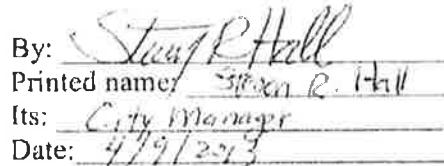 By: Steven R Hall
Printed name: Steven R. Hall
Its: City Manager
Date: 4/9/2013